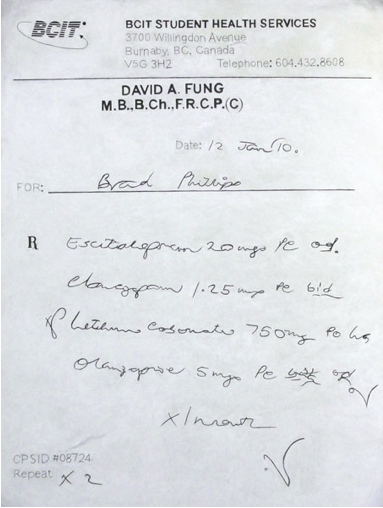 BCIT
BCIT STUDENT HEALTH SERVICES
3700 Willingdon Avenue
Burnaby, BC, Canada
V5G 3H2 Telephone: 604.432.8608
DAVID A. FUNG
M.B.,B.Ch.,F.R.C.P.(C)
Date: 12 Jan/10.
FOR: Brad Phillips
R Escitalopram 20 mgs po od.
1.25 mgs po bid
750mg po hs
Olanzapine 5 mgs po
x 1/month
CPSID #08724
Repeat x 2